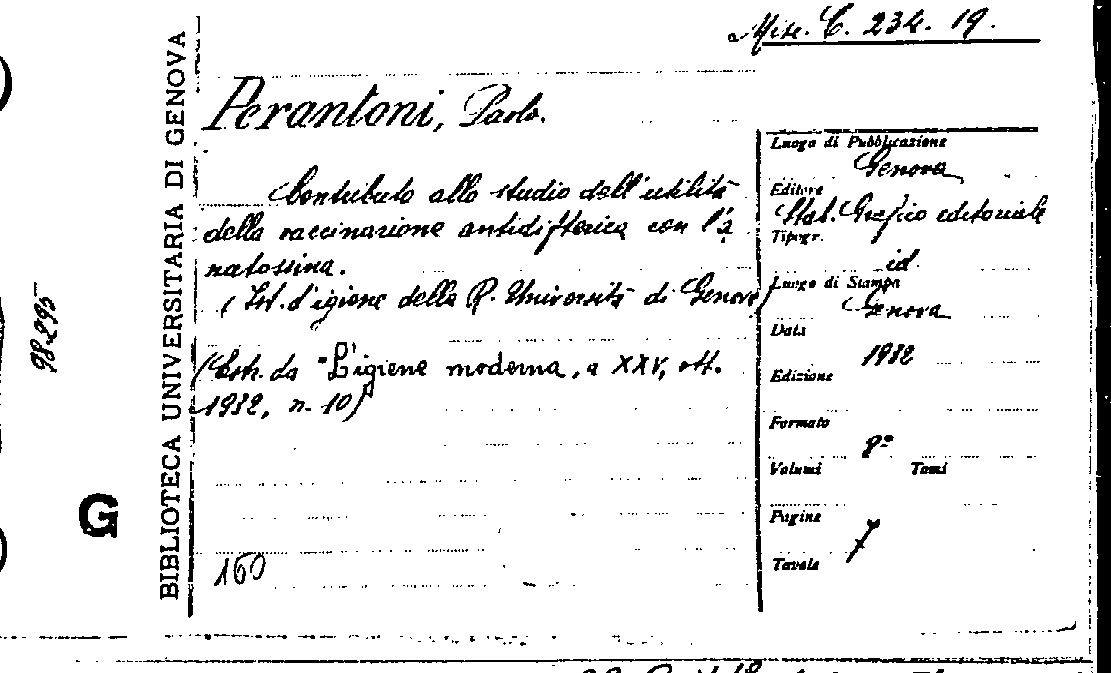 Misc. C. 234. 19.
Perantoni, Paolo.
Contributo allo studio dell'utilità
della vaccinazione antidifterica con l'a
natossina.
(Ist. d'igiene della R. Università di Genova)
(Estr. da "L'igiene moderna, a XXV, ott.
1932, n. 10)
160
Luogo di Pubblicazione
Genova
Editore
Stab. Grafico editoriale
Tipogr.
id.
Luogo di Stampa
Genova
Data
1932
Edizione
Formato
8º
Volumi Tomi
Pagine
7
Tavole
BIBLIOTECA UNIVERSITARIA DI GENOVA
98295
G